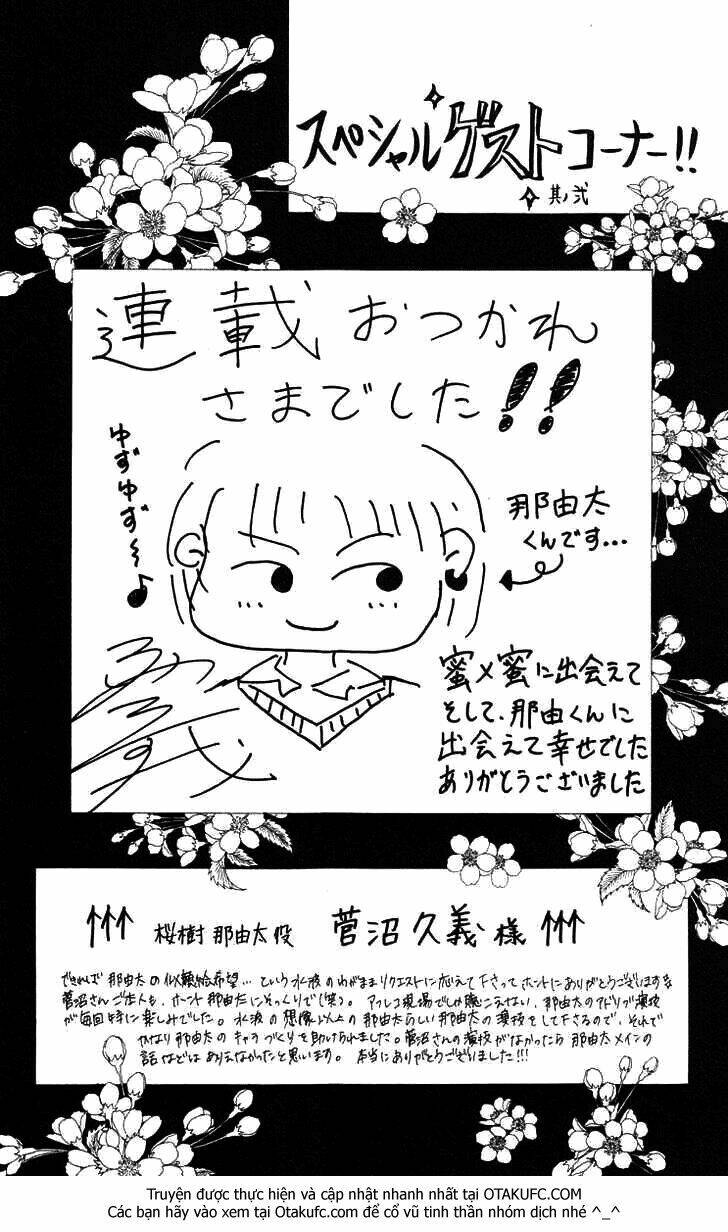 スペシャルゲストコーナー!!
其ノ弐
連載おつかれ
さまでした!!
ゆずゆず〜♪
那由太
くんです…
蜜×蜜に出会えて
そして、那由くんに
出会えて幸せでした
ありがとうございました
↑↑↑ 桜樹 那由太役 菅沼久義様 ↑↑↑
できれば那由太の似顔絵希望…という水波のわがままリクエストに応えて下さってホントにありがとうございます
菅沼さんご本人も、ホント那由太にそっくりで(笑)。アフレコ現場でしか聴こえない、那由太のアドリブ演技
が毎回特に楽しみでした。水波の想像以上の那由太らしい那由太の演技をして下さるので、それで
かなり那由太のキャラづくりを助けられました。菅沼さんの演技がなかったら那由太メインの
話などはありえなかったと思います。本当にありがとうございました!!!
Truyện được thực hiện và cập nhật nhanh nhất tại OTAKUFC.COM
Các bạn hãy vào xem tại Otakufc.com để cổ vũ tinh thần nhóm dịch nhé ^_^